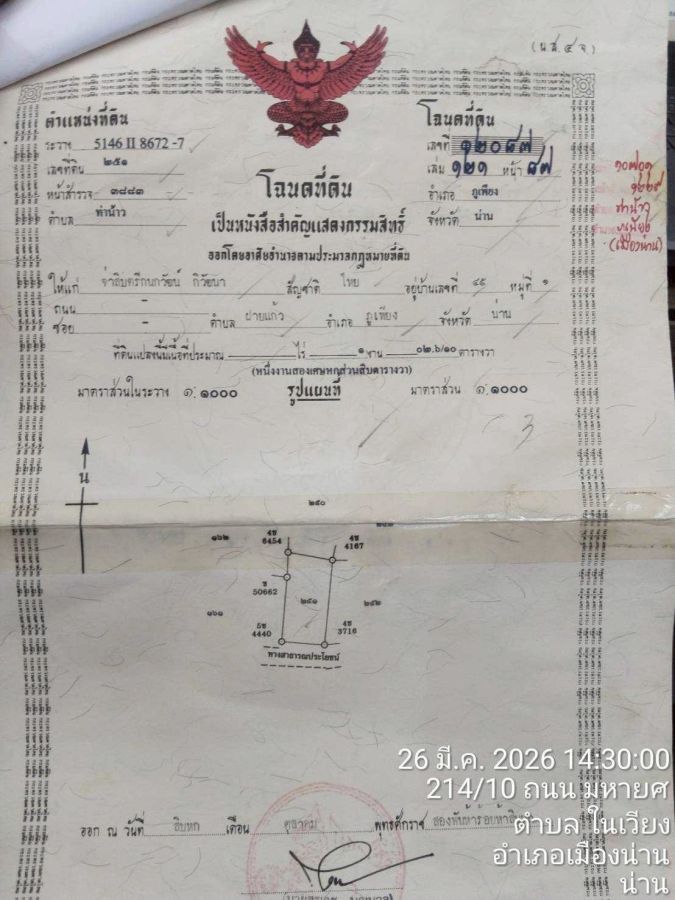 (น.ส.๔ จ)
ตำแหน่งที่ดิน
ระวาง 5146 II 8672-7
เลขที่ดิน ๒๕๑
หน้าสำรวจ ๓๘๘๓
ตำบล ท่าน้าว
โฉนดที่ดิน
เลขที่ ๑๒๐๘๗
เล่ม ๑๒๑ หน้า ๘๗
อำเภอ ภูเพียง
จังหวัด น่าน
๑๐๗๐๑
๑๒๒๙
ท่าน้าว
ภูเพียง
(เมืองน่าน)
โฉนดที่ดิน
เป็นหนังสือสำคัญแสดงกรรมสิทธิ์
ออกโดยอาศัยอำนาจตามประมวลกฎหมายที่ดิน
ให้แก่ จ่าสิบตรีกนกวัฒน์ กิวัฒนา สัญชาติ ไทย อยู่บ้านเลขที่ ๔๕ หมู่ที่ ๑
ถนน - ตำบล ฝายแก้ว อำเภอ ภูเพียง จังหวัด น่าน
ซอย -
ที่ดินแปลงนี้มีเนื้อที่ประมาณ ไร่ ๑ งาน ๐๒.๖/๑๐ ตารางวา
(หนึ่งงานสองเศษหกส่วนสิบตารางวา)
มาตราส่วนในระวาง ๑:๑๐๐๐ รูปแผนที่ มาตราส่วน ๑:๑๐๐๐
3
น
๒๕๐
๑๖๒ 4ช 6454 4ช 4167
ช 50662
๑๖๑ ๒๕๑ ๒๕๒
5ช 4440 4ช 3716
ทางสาธารณประโยชน์
ออก ณ วันที่ สิบหก เดือน ตุลาคม พุทธศักราช สองพันห้าร้อยห้าสิบ
26 มี.ค. 2026 14:30:00
214/10 ถนน มหายศ
ตำบล ในเวียง
อำเภอเมืองน่าน
น่าน